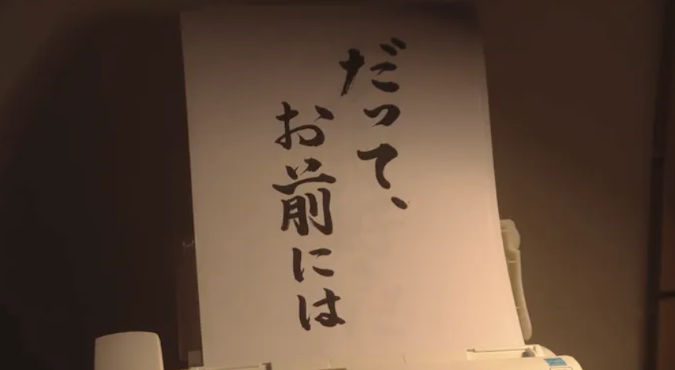 だって、
お前には